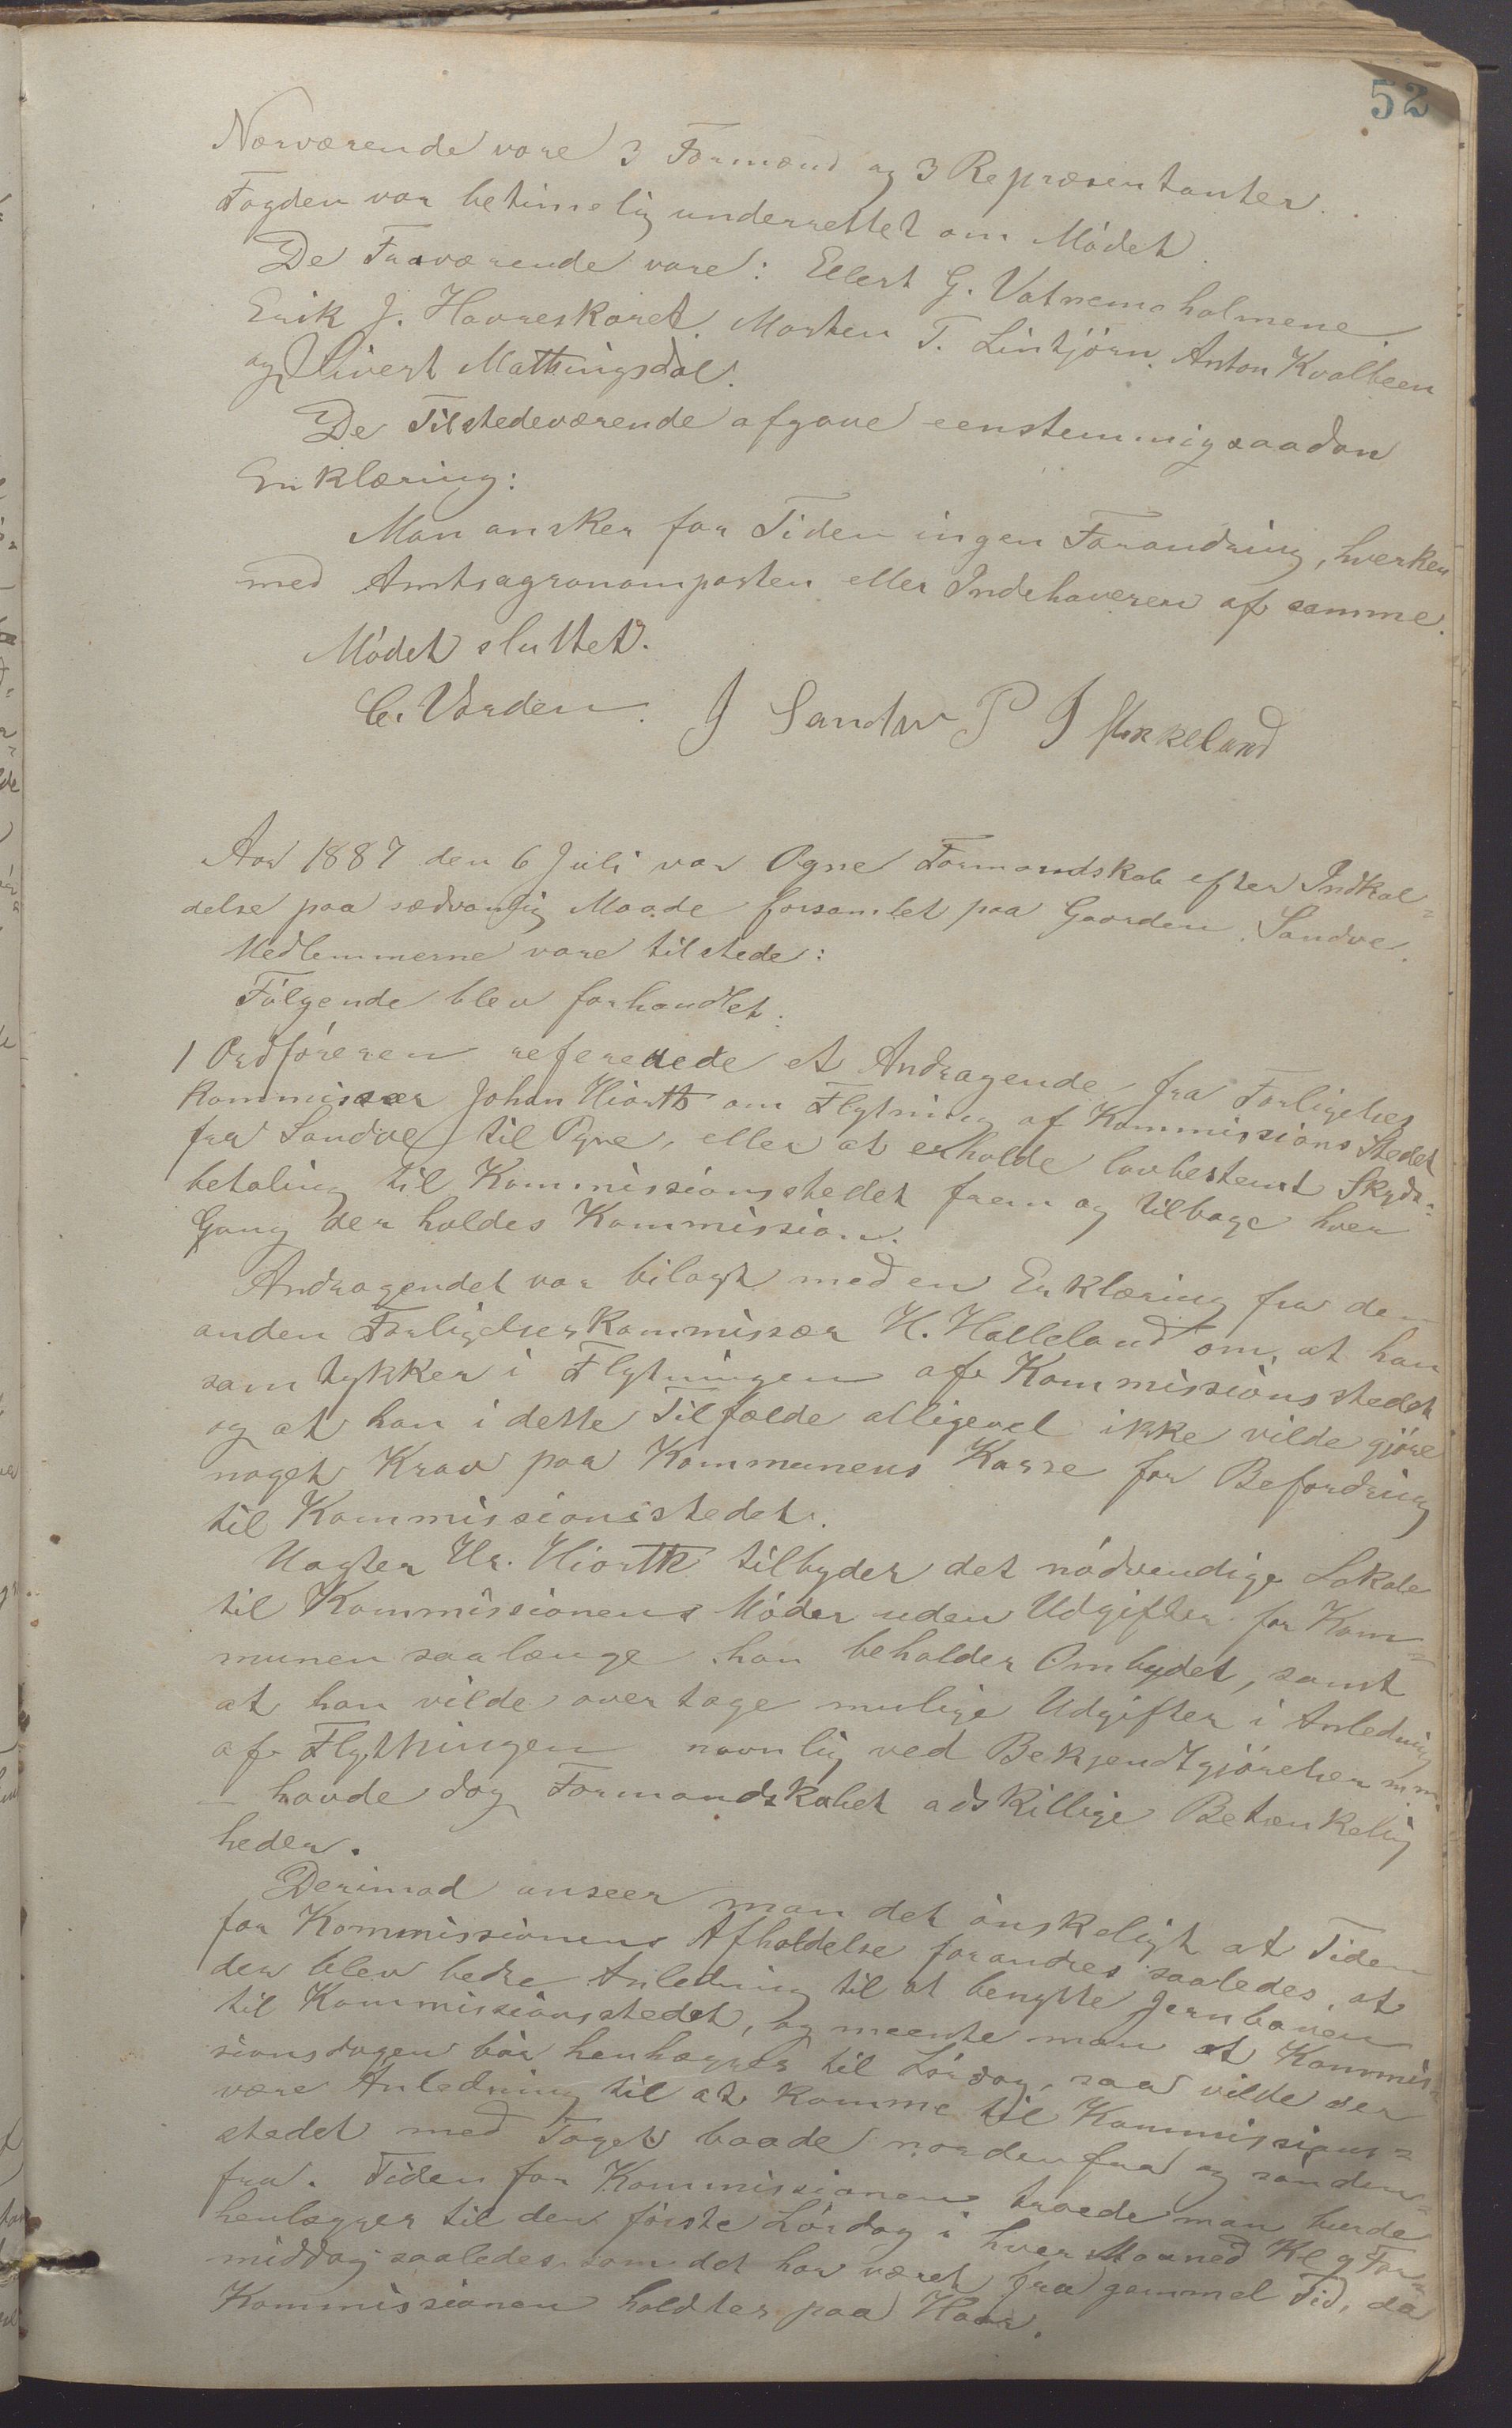 52
Nærværende vare 3 Formænd og 3 Repræsentanter.
Fogden var betimelig underrettet om Mödet.
De Fraværende vare: Ellert G. Vatnemoholmene
Erik J. Havreskaret. Morten T. Lintjörn. Anton Kvalbeen
og Sivert Mattingsdal.
De Tilstedeværende afgave eenstemmig saadan
Erklæring:
Man ønsker for Tiden ingen Forandring, hverken
med Amtsagronomposten eller Indehaveren af samme.
Mödet sluttet.
C. Varden. J Sandve P J Birkeland
Aar 1887 den 6 Juli var Ogne Formandskab efter Indkal=
delse paa sædvanlig Maade forsamlet paa Gaarden Sandve.
Medlemmerne vare tilstede:
Fölgende blev forhandlet:
1 Ordföreren refererede et Andragende fra Forligelses
Kommissær Johan Hiorth om Flytning af Kommissions Stedet
fra Sandve til Ogne, eller at erholde lovbestemt Skyds=
betaling til Kommissionsstedet frem og tilbage hver
Gang der holdes Kommission.
Andragendet var bilagt med en Erklæring fra den
anden Forligelseskommissær H. Helleland om, at han
samtykker i Flytningen af Kommissionsstedet
og at han i dette Tilfælde alligevel ikke vilde gjöre
noget Krav paa Kommunens Kasse for Befordring
til Kommissionsstedet.
Uagtet Hr. Hiorth tilbyder det nödvendige Lokale
til Kommissionens Möder uden Udgifter for Kom=
munen saalænge han beholder Ombydet, samt
at han vilde overtage mulige Udgifter i Anledning
af Flytningen navnlig ved Bekjendtgjörelser m.m.
– havde dog Formandskabet adskillige Betænkelig
heder.
Derimod anseer man det önskeligt at Tiden
for Kommissionens Afholdelse forandres saaledes, at
der blev bedre Anledning til at benytte Jernbanen
til Kommissionsstedet, og meente man at Kommis=
sionsdagen bör henlægges til Lördag, saa vilde der
være Anledning til at komme til Kommissions=
stedet med Toget baade nordenfra og sønden=
fra. Tiden for Kommissionen troede man burde
henlægges til den förste Lördag i hver Maaned Kl 9 For=
middag saaledes som det har været fra gammel Tid, da
Kommissionen holdtes paa Haar.